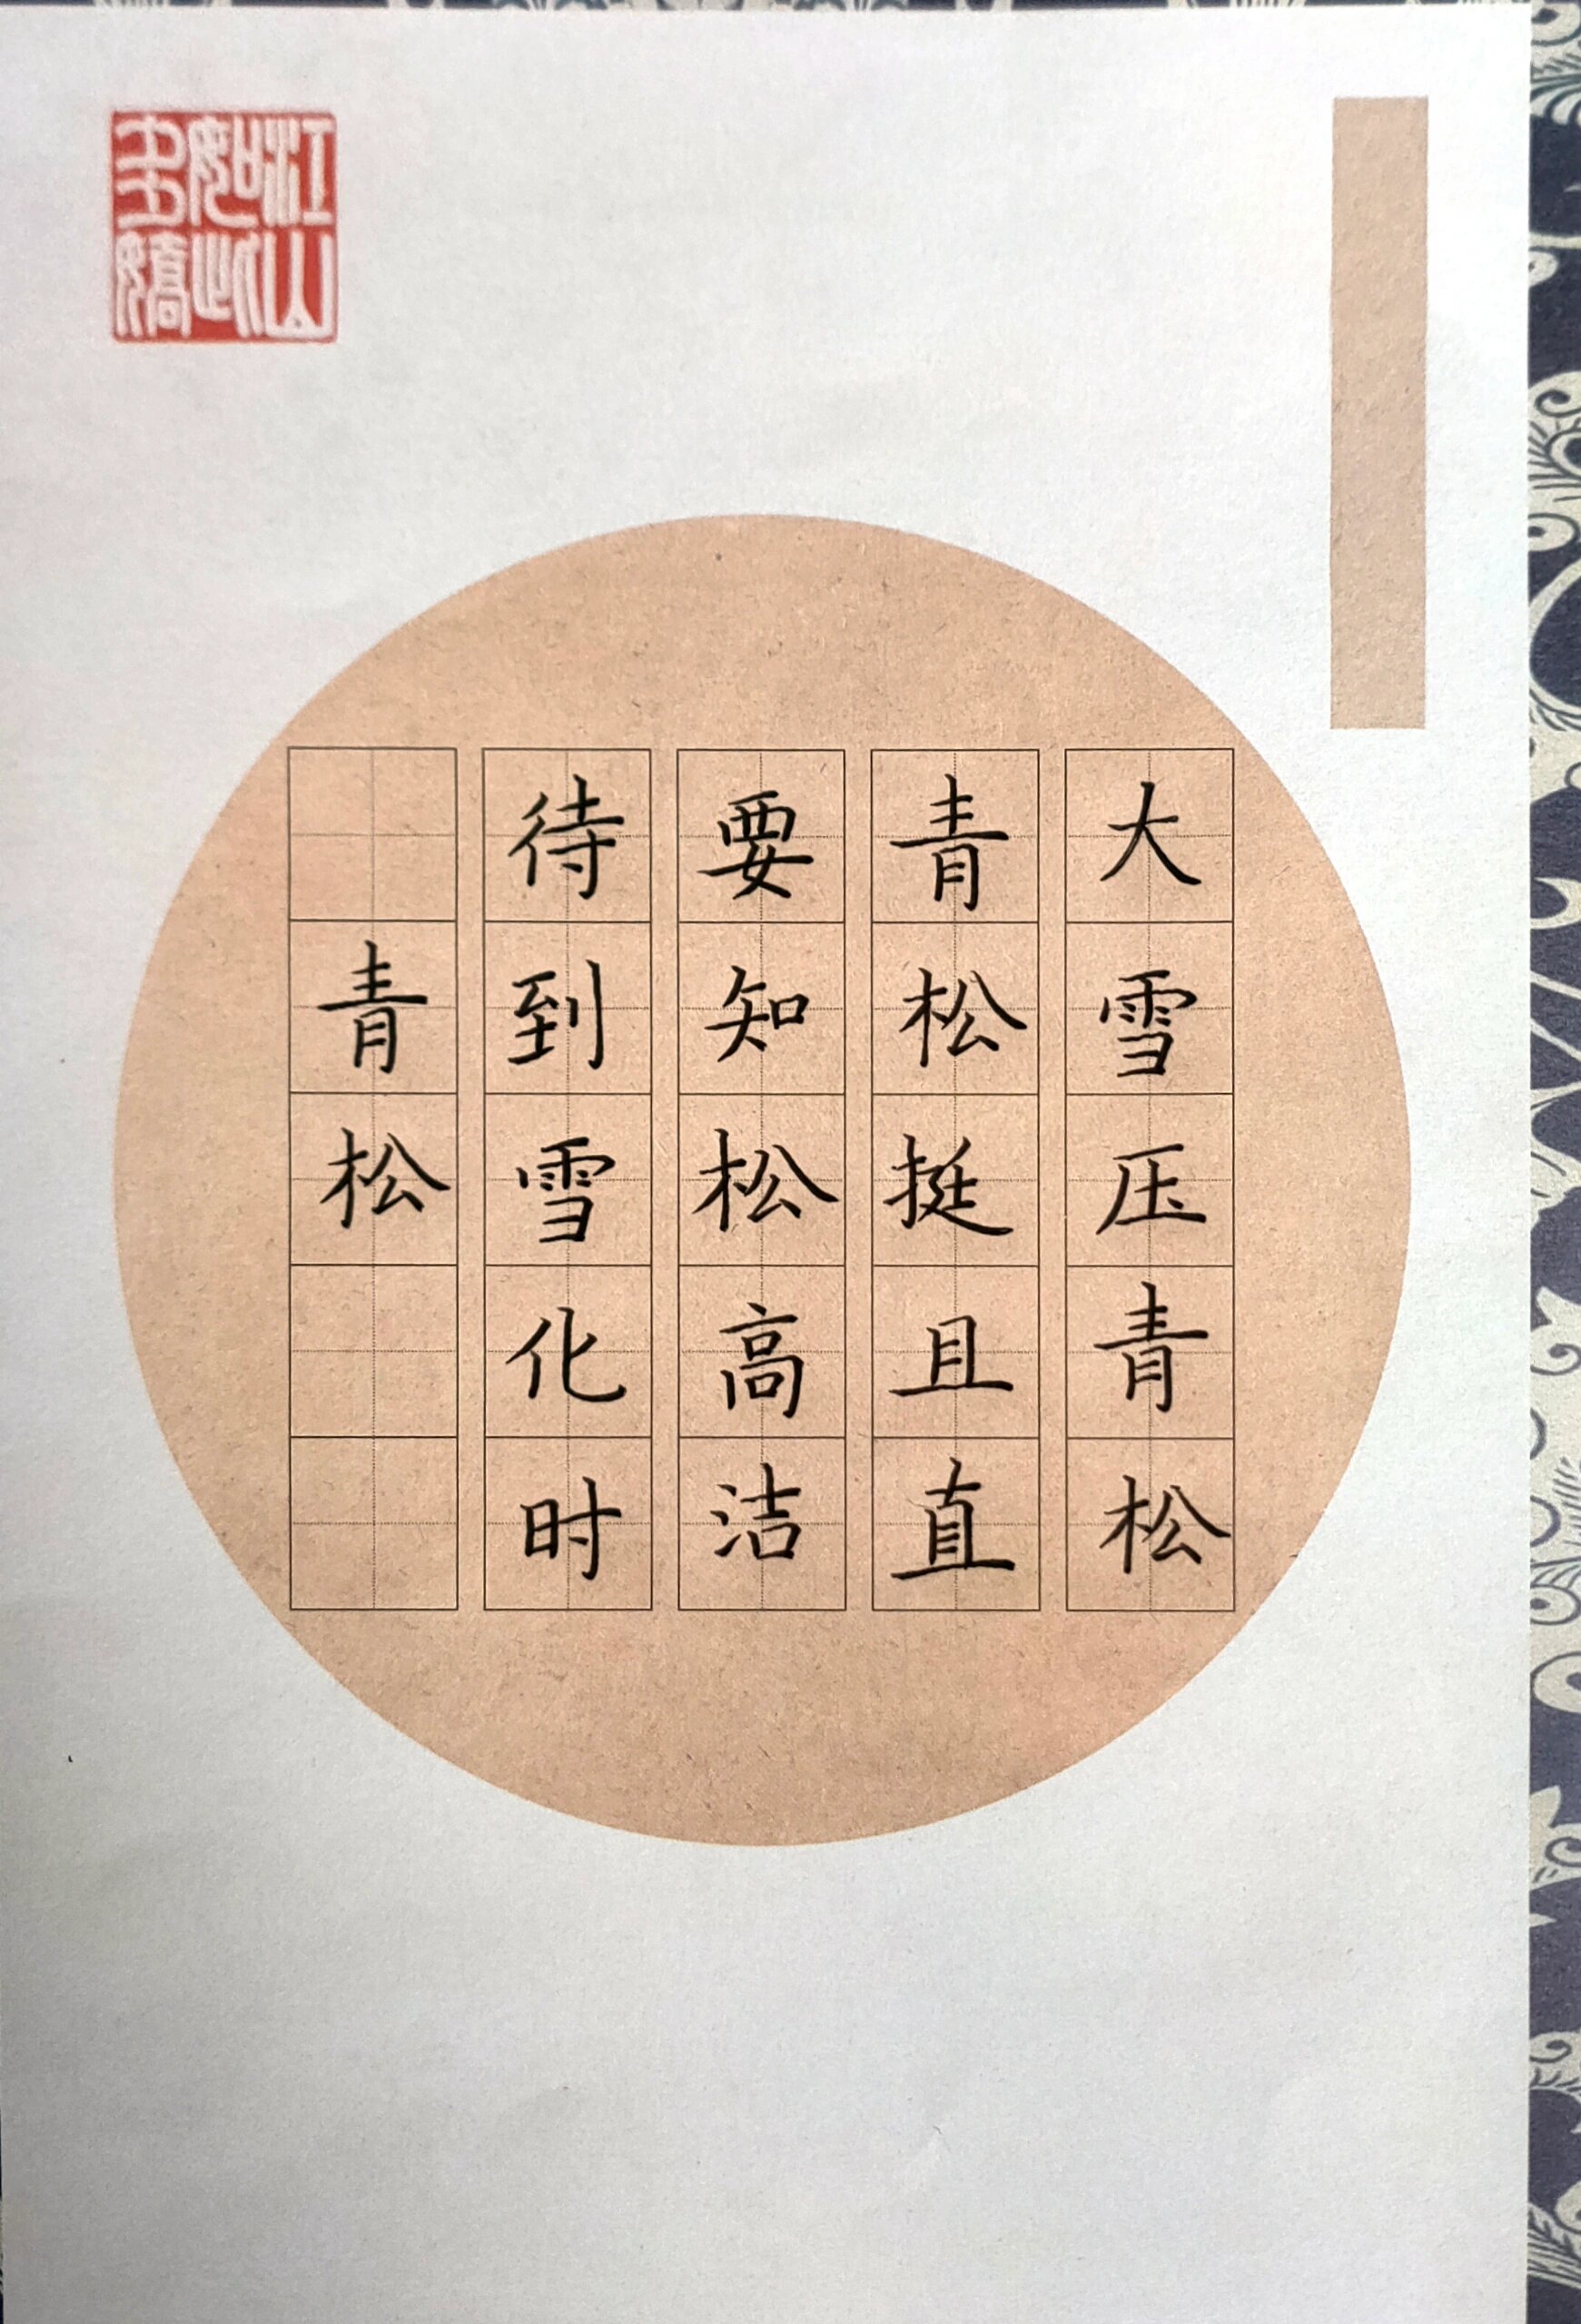 大雪压青松
青松挺且直
要知松高洁
待到雪化时
青松
江山如此多娇